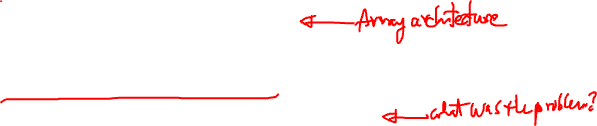 Array architecture
what was the problem?